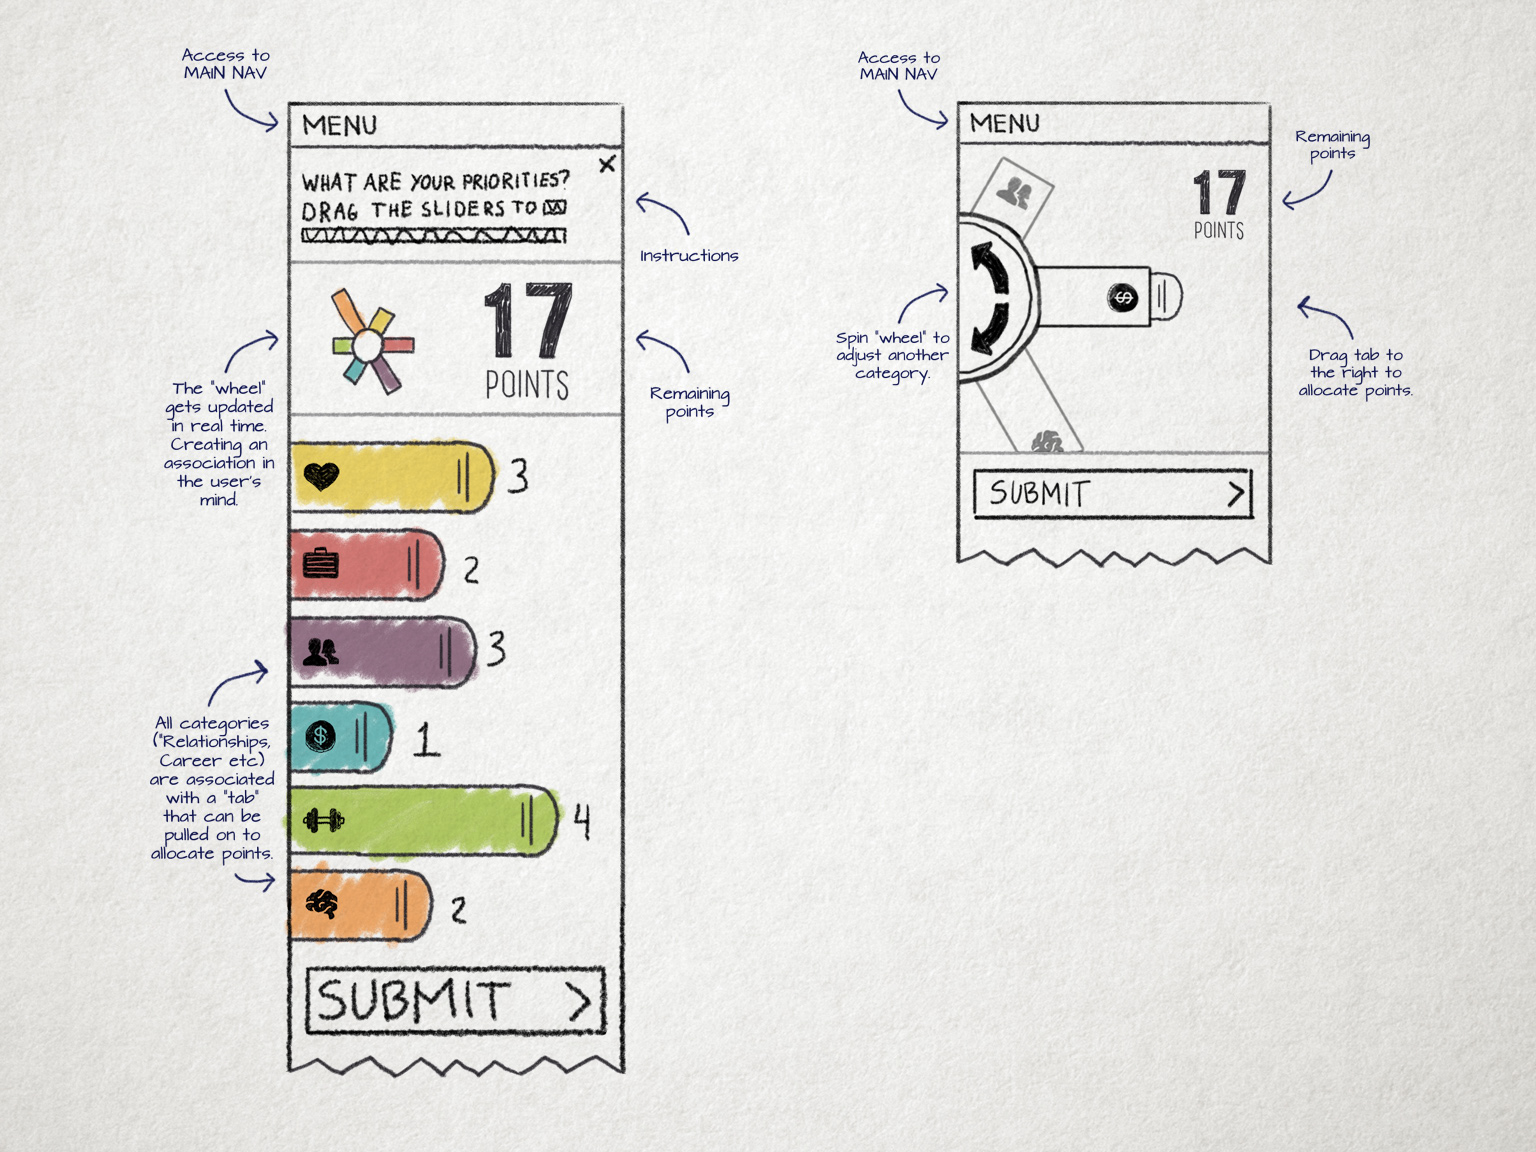 Access to
MAIN NAV
MENU
WHAT ARE YOUR PRIORITIES?
DRAG THE SLIDERS TO
Instructions
17
POINTS
The "wheel"
gets updated
in real time.
Creating an
association in
the user's
mind.
Remaining
points
3
2
3
All categories
("Relationships,
Career etc)
are associated
with a "tab"
that can be
pulled on to
allocate points.
$
1
4
2
SUBMIT >
Access to
MAIN NAV
MENU
Remaining
points
17
POINTS
Spin "wheel" to
adjust another
category.
$
Drag tab to
the right to
allocate points.
SUBMIT >